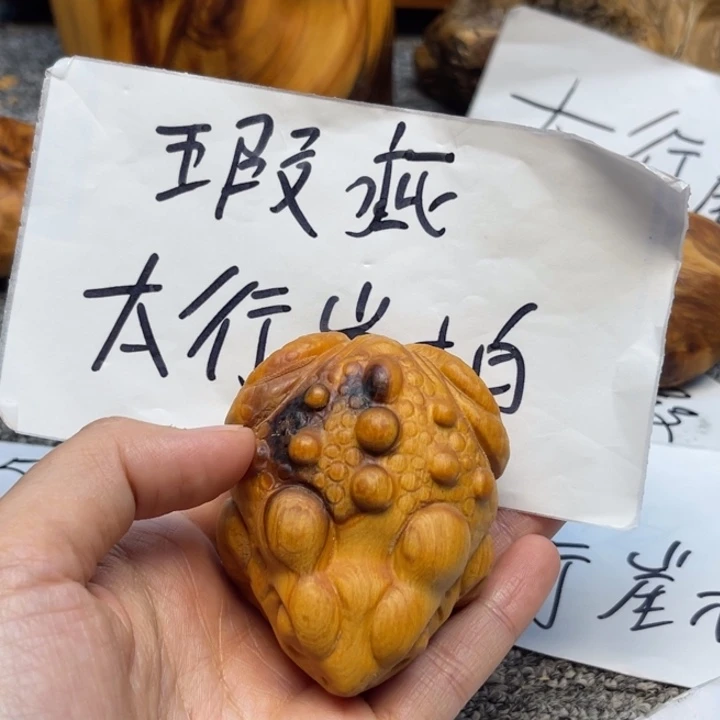 瑕疵
太行崖柏
太行崖
行崖